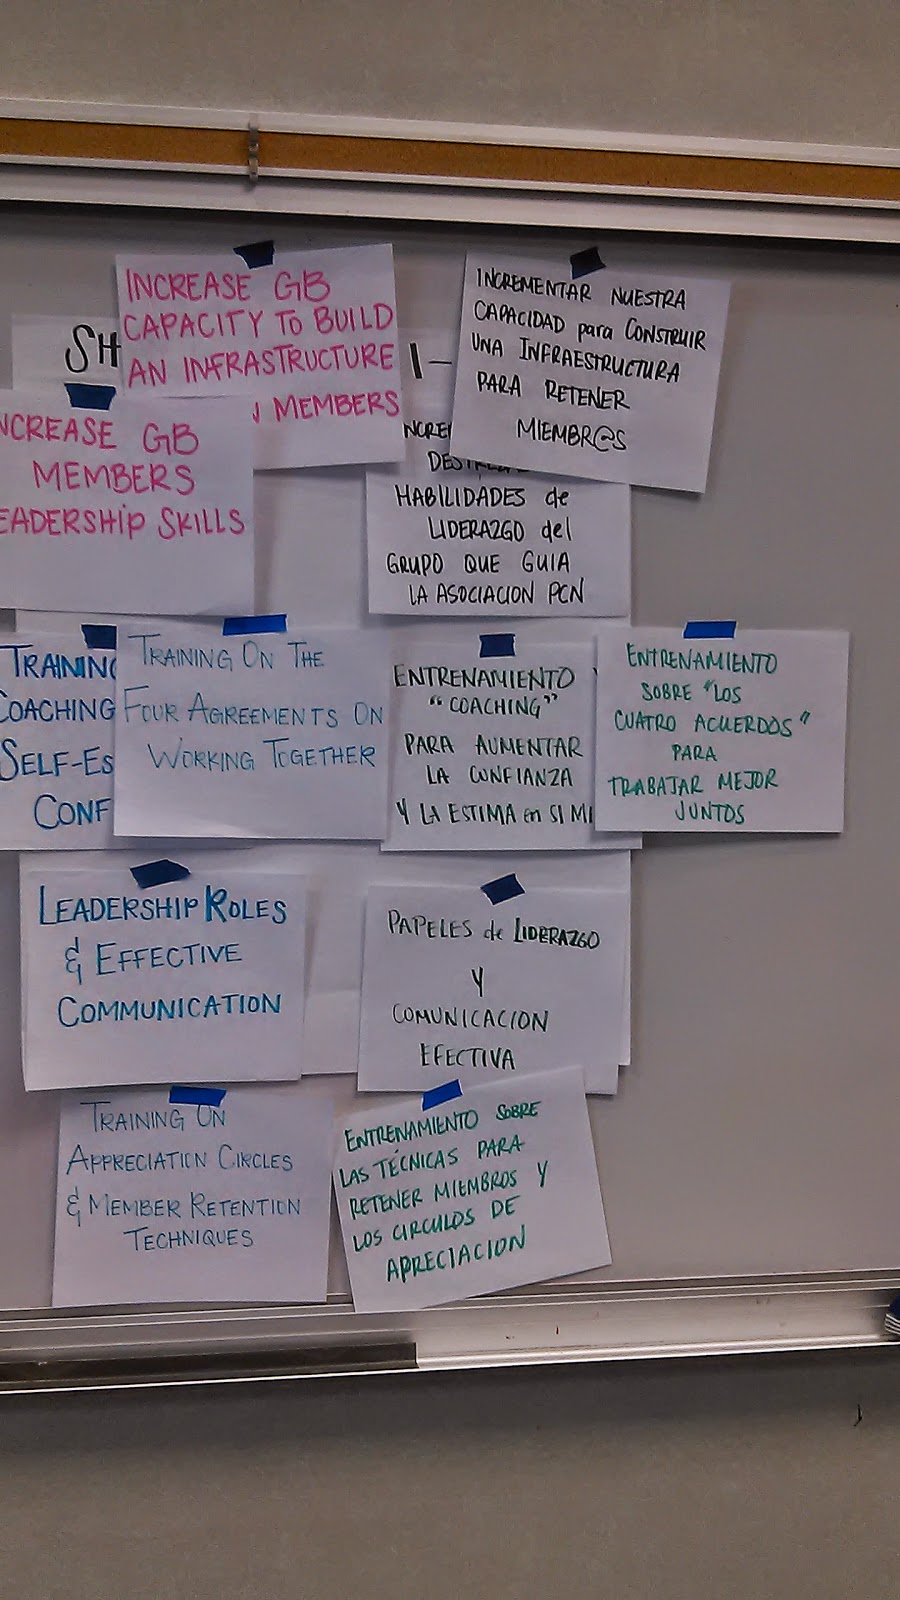 INCREASE GB
CAPACITY TO BUILD
AN INFRASTRUCTURE
MEMBERS
INCREMENTAR NUESTRA
CAPACIDAD para CONSTRUIR
UNA INFRAESTRUCTURA
PARA RETENER
MIEMBR@S
SH
NCREASE GB
MEMBERS
EADERSHIP SKILLS
INCRE
DESTRE
HABILIDADES de
LIDERAZGO del
GRUPO QUE GUIA
LA ASOCIACION PCN
TRAINING
COACHING
SELF-ES
CONF
TRAINING ON THE
FOUR AGREEMENTS ON
WORKING TOGETHER
ENTRENAMIENTO
"COACHING"
PARA AUMENTAR
LA CONFIANZA
Y LA ESTIMA en SI MI
ENTRENAMIENTO
SOBRE "LOS
CUATRO ACUERDOS"
PARA
TRABAJAR MEJOR
JUNTOS
LEADERSHIP ROLES
& EFFECTIVE
COMMUNICATION
PAPELES de LIDERAZGO
Y
COMUNICACION
EFECTIVA
TRAINING ON
APPRECIATION CIRCLES
& MEMBER RETENTION
TECHNIQUES
ENTRENAMIENTO SOBRE
LAS TÉCNICAS PARA
RETENER MIEMBROS Y
LOS CIRCULOS DE
APRECIACION